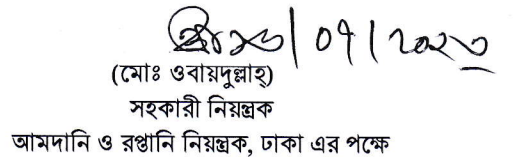 ১৬/০৭/২০২৩
(মোঃ ওবায়দুল্লাহ্)
সহকারী নিয়ন্ত্রক
আমদানি ও রপ্তানি নিয়ন্ত্রক, ঢাকা এর পক্ষে